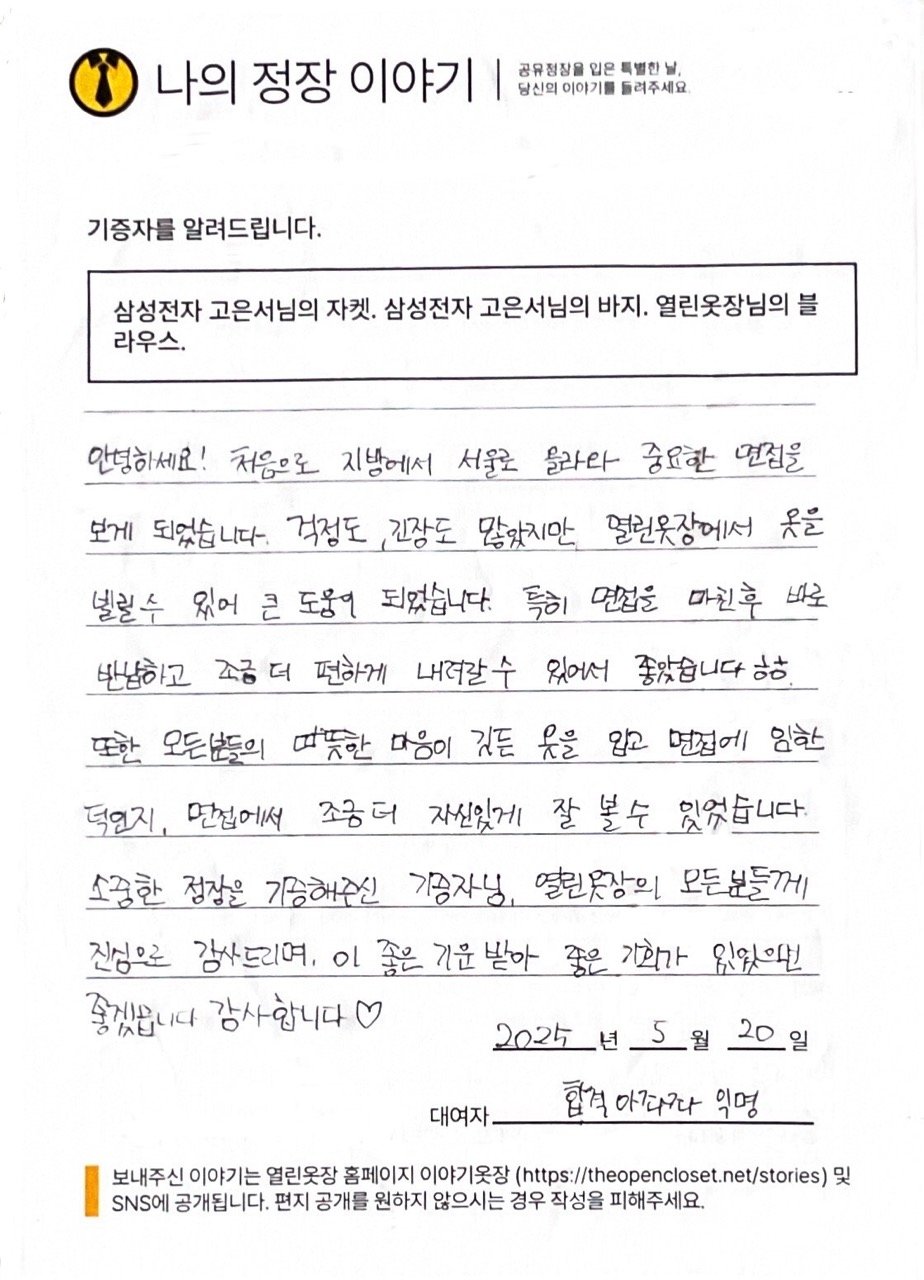 나의 정장 이야기
공유정장을 입은 특별한 날,
당신의 이야기를 들려주세요.
기증자를 알려드립니다.
삼성전자 고은서님의 자켓. 삼성전자 고은서님의 바지. 열린옷장님의 블
라우스.
안녕하세요! 처음으로 지방에서 서울로 올라와 중요한 면접을
보게 되었습니다. 걱정도, 긴장도 많았지만, 열린옷장에서 옷을
빌릴 수 있어 큰 도움이 되었습니다. 특히 면접을 마친후 바로
반납하고 조금 더 편하게 내려갈 수 있어서 좋았습니다 ㅎㅎ.
또한 모든분들의 따뜻한 마음이 깃든 옷을 입고 면접에 임한
덕인지, 면접에서 조금 더 자신있게 잘 볼 수 있었습니다.
소중한 정장을 기증해주신 기증자님, 열린옷장의 모든분들께
진심으로 감사드리며, 이 좋은 기운 받아 좋은 기회가 있었으면
좋겠습니다 감사합니다♡
2025 년 5 월 20 일
대여자 합격 아자자 익명
보내주신 이야기는 열린옷장 홈페이지 이야기옷장 (https://theopencloset.net/stories) 및
SNS에 공개됩니다. 편지 공개를 원하지 않으시는 경우 작성을 피해주세요.